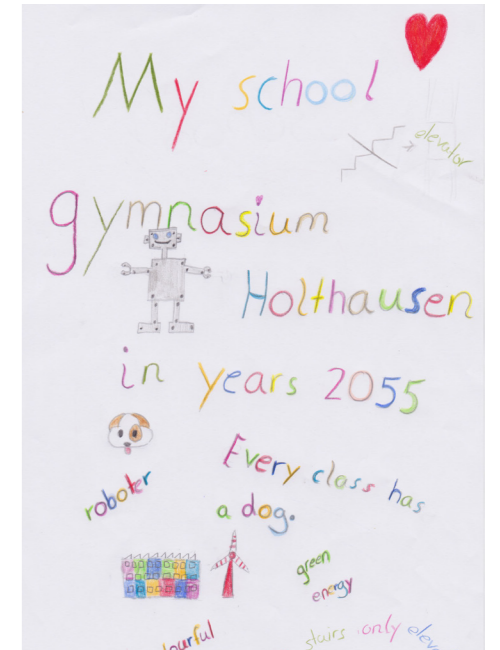 My school
elevator
gymnasium
Holthausen
in years 2055
Every class has
a dog.
roboter
green
energy
stairs only